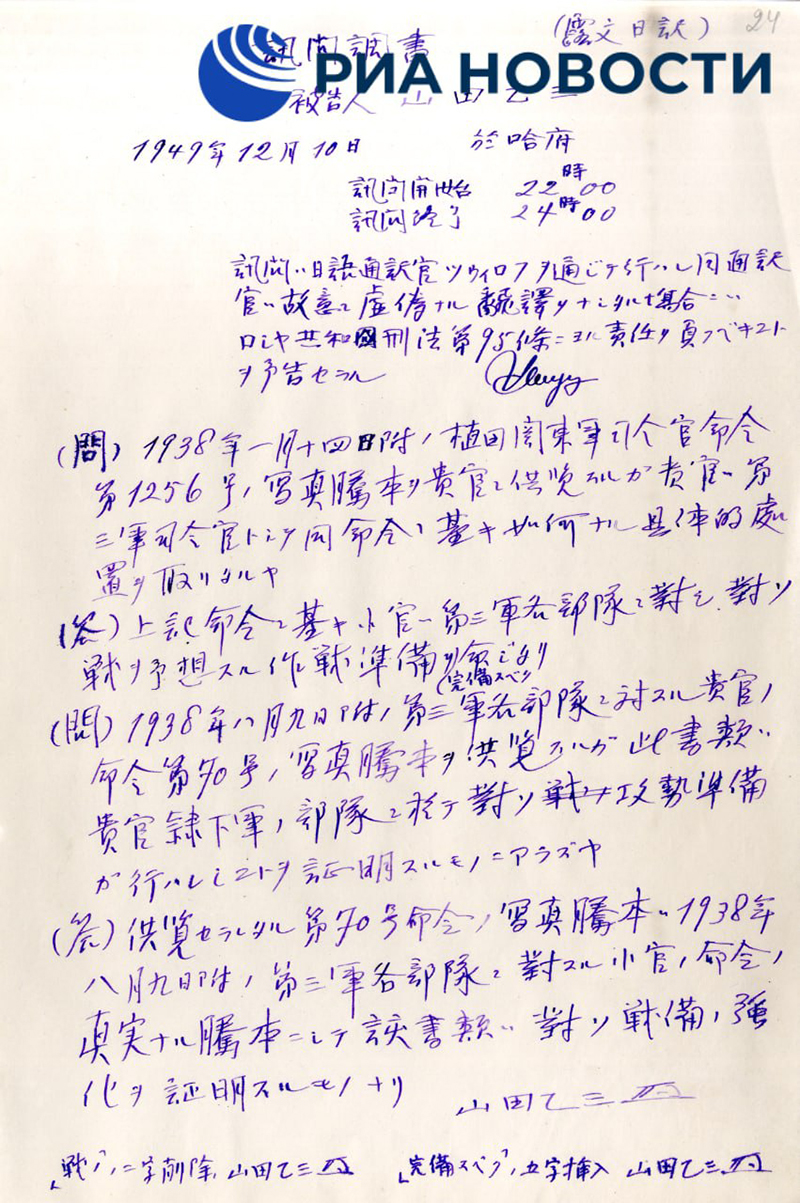 24
(露文日訳)
訊問調書
РИА НОВОСТИ
被告人 山田乙三
1949年12月10日 於哈府
訊問開始 22時00
訊問終了 24時00
訊問ハ日語通訳官ツウィロフヲ通ジテ行ハレ同通訳
官ハ故意ニ虚偽ナル翻譯ヲナシタル場合ニハ
ロシヤ共和国刑法第95條ニヨル責任ヲ負フベキコト
ヲ予告セラル
(問) 1938年一月十四日附ノ植田関東軍司令官命令
第1256号ノ写真謄本ヲ貴官ニ供覧スルガ貴官ハ第
三軍司令官トシテ同命令ニ基キ如何ナル具体的處
置ヲ取リタルヤ
(答) 上記命令ニ基キ小官ハ第三軍各部隊ニ對シ對ソ
戦ヲ予想スル作戦準備ヲ命ジタリ
(完備スベク)
(問) 1938年八月九日附ノ第三軍各部隊ニ対スル貴官ノ
命令第70号ノ写真謄本ヲ供覧スルガ此書類ハ
貴官隷下軍ノ部隊ニ於テ對ソ攻勢準備
ガ行ハレシコトヲ証明スルモノニアラズヤ
(答) 供覧セラレタル第70号命令ノ写真謄本ハ1938年
八月九日附ノ第三軍各部隊ニ對スル小官ノ命令ノ
真実ナル謄本ニシテ該書類ハ對ソ戦備ノ強
化ヲ証明スルモノナリ
山田乙三
「戦ノ」ノ二字削除 山田乙三 「完備スベク」ノ五字挿入 山田乙三